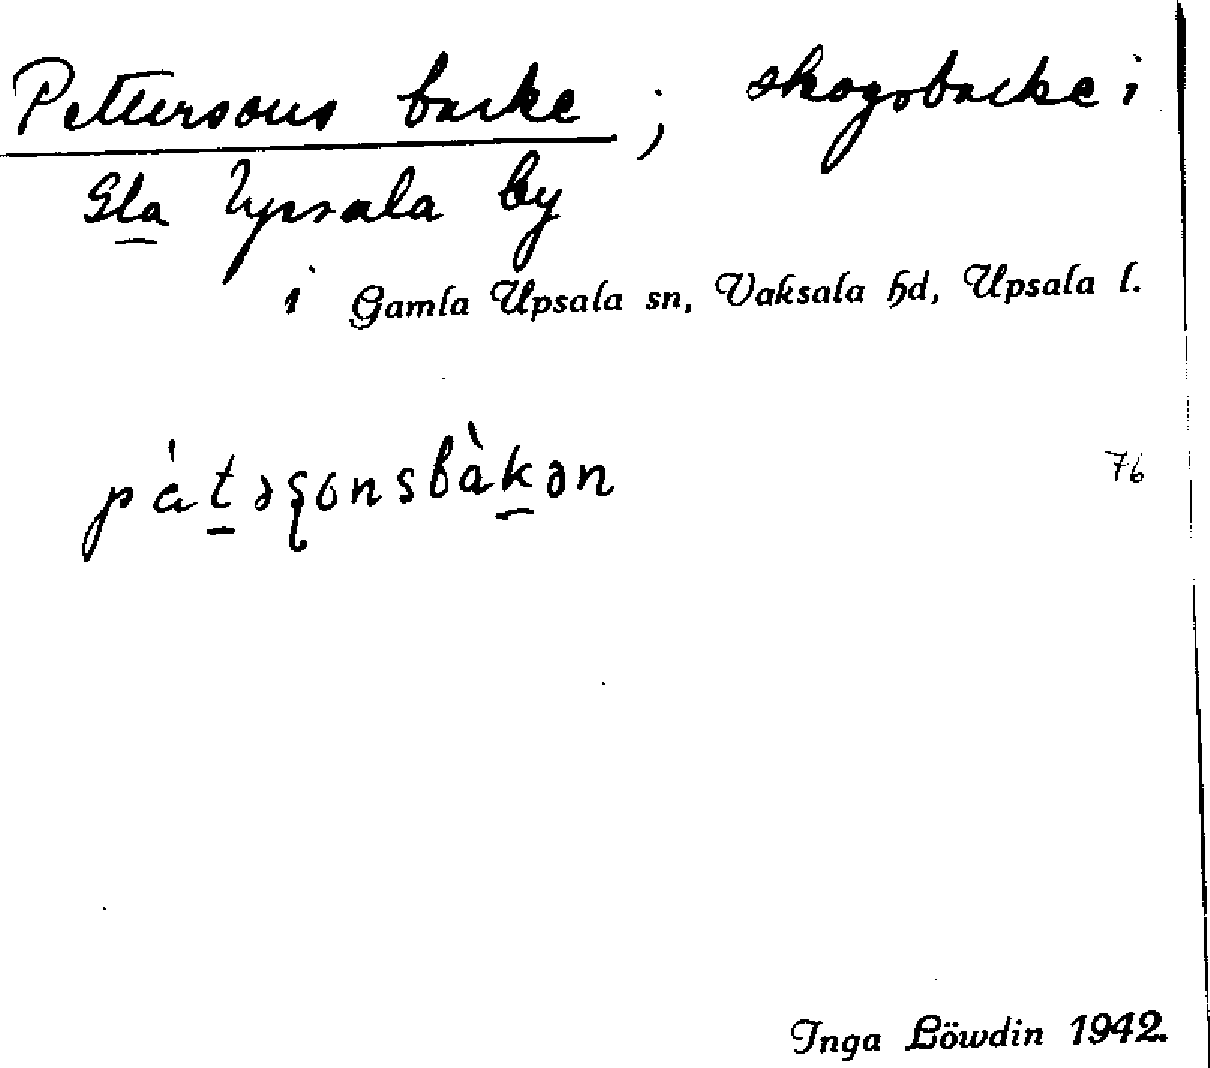 Petterssons backe ; skogsbacke i
Gla Upsala by
i Gamla Upsala sn, Vaksala hd, Upsala l.
pàtəʂonsbàkən
76
Inga Löwdin 1942.